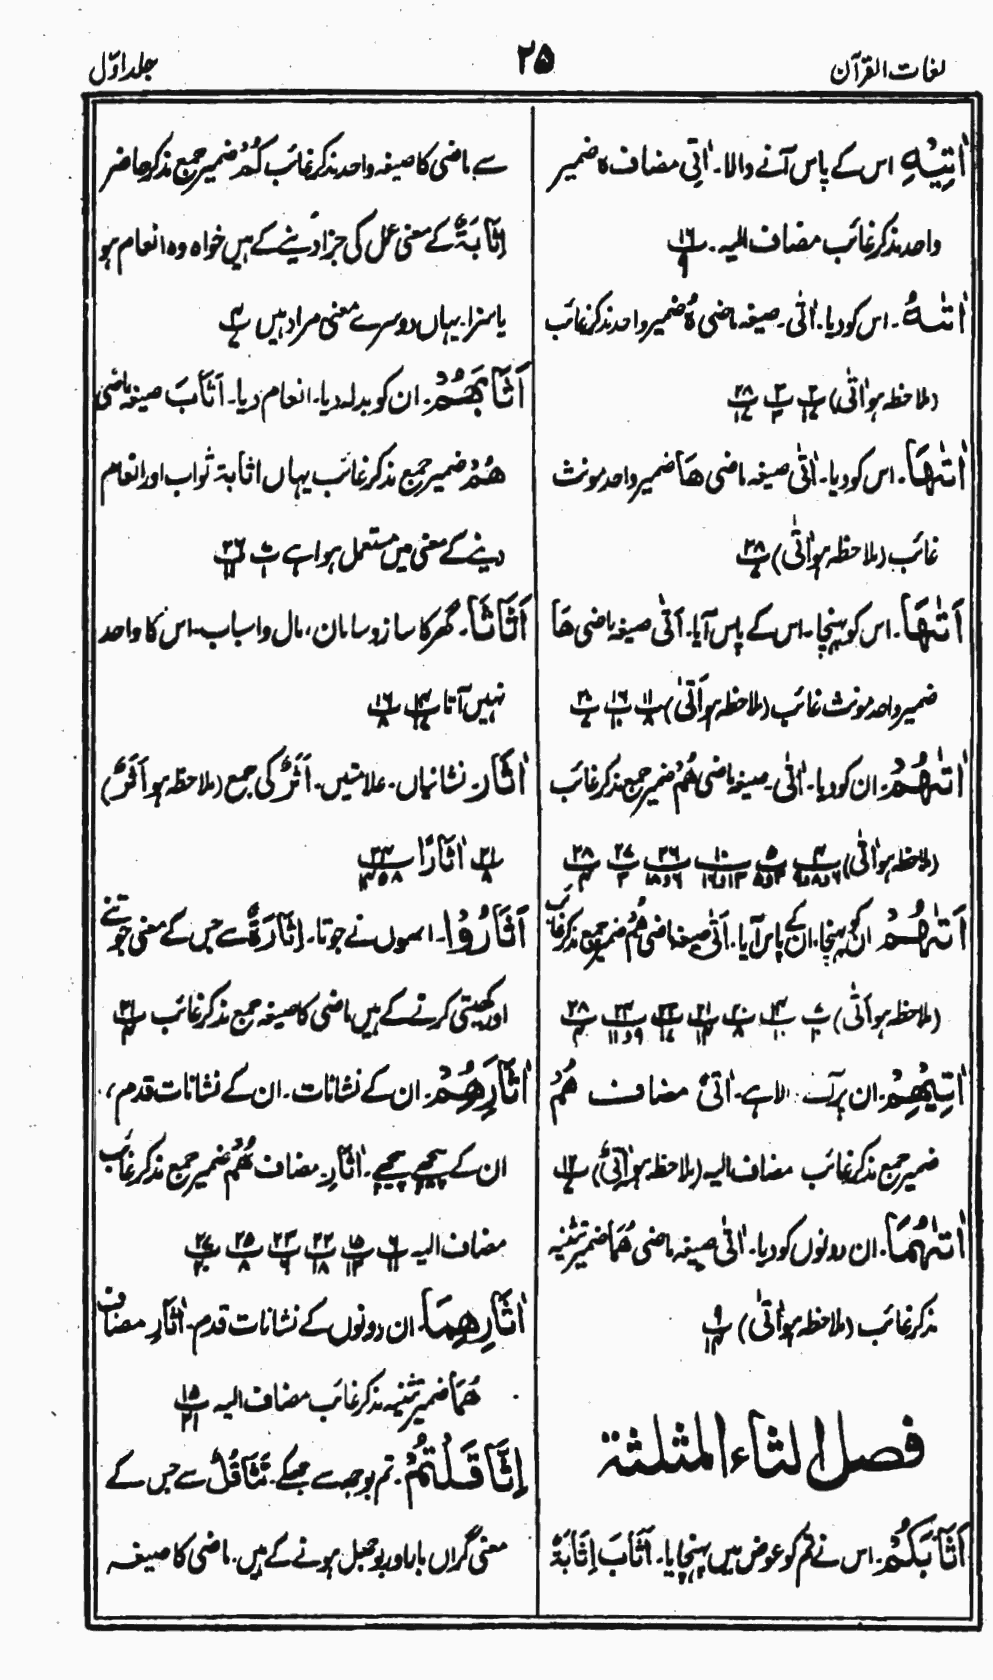 لغات القرآن
۲۵
جلد اوّل
اٰتِیْہِ اس کے پاس آنے والا۔ اٰتِی مضاف ہ ضمیر
واحد مذکر غائب مضاف الیہ۔ ۱۶ / ۹
اٰتٰـہُ۔ اس کو دیا۔ اٰتٰی۔ صیغہ ماضی ہٗ ضمیر واحد مذکر غائب
(ملاحظہ ہو اٰتٰی)
اٰتٰہَا۔ اس کو دیا۔ اٰتٰی صیغہ ماضی ھَا ضمیر واحد مونث
غائب (ملاحظہ ہو اٰتٰی) ۲۸
اَتٰہَا۔ اس کو پہنچا۔ اس کے پاس آیا۔ اَتٰی صیغہ ماضی ھَا
ضمیر واحد مونث غائب (ملاحظہ ہو اَتٰی)
اٰتٰہُمْ۔ ان کو دیا۔ اٰتٰی۔ صیغہ ماضی ھُمْ ضمیر جمع مذکر غائب
(ملاحظہ ہو اٰتٰی)
اَتٰہُمْ ان کو پہنچا۔ ان کے پاس آیا۔ اَتٰی صیغہ ماضی ھُمْ ضمیر جمع مذکر غائب
(ملاحظہ ہو اَتٰی)
اٰتِیْہِمْ۔ ان پر آنے والا ہے۔ اٰتیٌ مضاف ھُمْ
ضمیر جمع مذکر غائب مضاف الیہ (ملاحظہ ہو اٰتِیٌ)
اٰتٰہُمَا۔ ان دونوں کو دیا۔ اٰتٰی صیغہ ماضی ھُمَا ضمیر تثنیہ
مذکر غائب (ملاحظہ ہو اٰتٰی) ۹ / ۱۴
فصل الثاء المثلثۃ
اَثَابَکُمْ۔ اس نے تم کو عوض میں پہنچایا۔ اَثَابَ اِثَابَۃٌ
سے ماضی کا صیغہ واحد مذکر غائب کُمْ ضمیر جمع مذکر حاضر
اِثَابَۃٌ کے معنی عمل کی جزا دینے کے ہیں خواہ وہ انعام ہو
یا سزا۔ یہاں دوسرے معنی مراد ہیں
اَثَابَہُمْ۔ ان کو بدلہ دیا۔ انعام دیا۔ اَثَابَ صیغہ ماضی
ھُمْ ضمیر جمع مذکر غائب یہاں اثابۃ ثواب اور انعام
دینے کے معنی میں مستعمل ہوا ہے
اَثَاثًا۔ گھر کا ساز و سامان، مال و اسباب۔ اس کا واحد
نہیں آتا
اٰثَار۔ نشانیاں۔ علامتیں۔ اَثَرٌ کی جمع (ملاحظہ ہو اَثَرٌ)
۲۱ / ۸ اٰثَارًا
اَثَارُوْا۔ انھوں نے جوتا۔ اِثَارَۃٌ سے جس کے معنی جوتنے
اور کھیتی کرنے کے ہیں ماضی کا صیغہ جمع مذکر غائب
اٰثَارِھِمْ۔ ان کے نشانات۔ ان کے نشانات قدم،
ان کے پیچھے پیچھے۔ اٰثَارِ۔ مضاف ھُمْ ضمیر جمع مذکر غائب
مضاف الیہ
اٰثَارِھِمَا۔ ان دونوں کے نشانات قدم۔ اٰثَارِ مضاف
ھُمَا ضمیر تثنیہ مذکر غائب مضاف الیہ ۱۵ / ۲۱
اِثَّاقَلْتُمْ۔ تم بوجھ سے جھکے۔ تَثَاقُلٌ سے جس کے
معنی گراں بار اور بوجھل ہونے کے ہیں۔ ماضی کا صیغہ